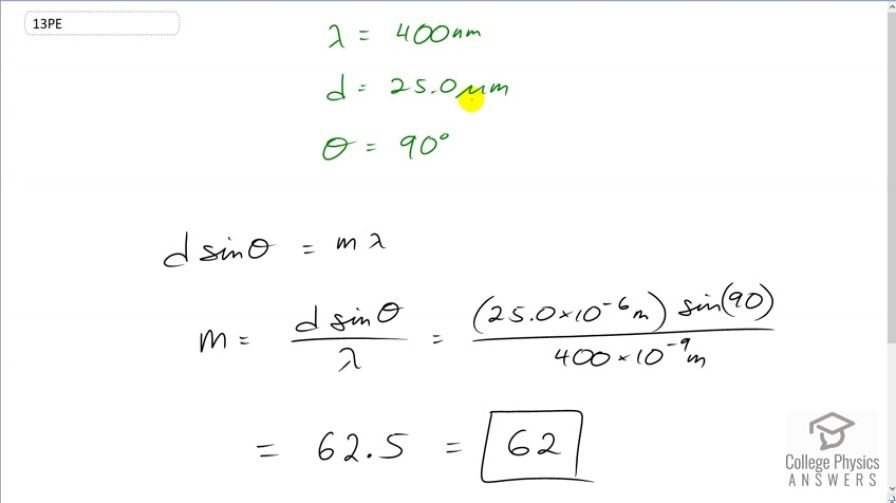 13PE
λ = 400nm
d = 25.0μm
θ = 90°
d sinθ = mλ
m = d sinθ / λ = (25.0×10⁻⁶m) sin(90) / 400×10⁻⁹m
= 62.5 = 62
College Physics
ANSWERS